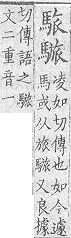 凌如切傳也如今遽
馬或从旅又良據
切傳語之
文二重音一